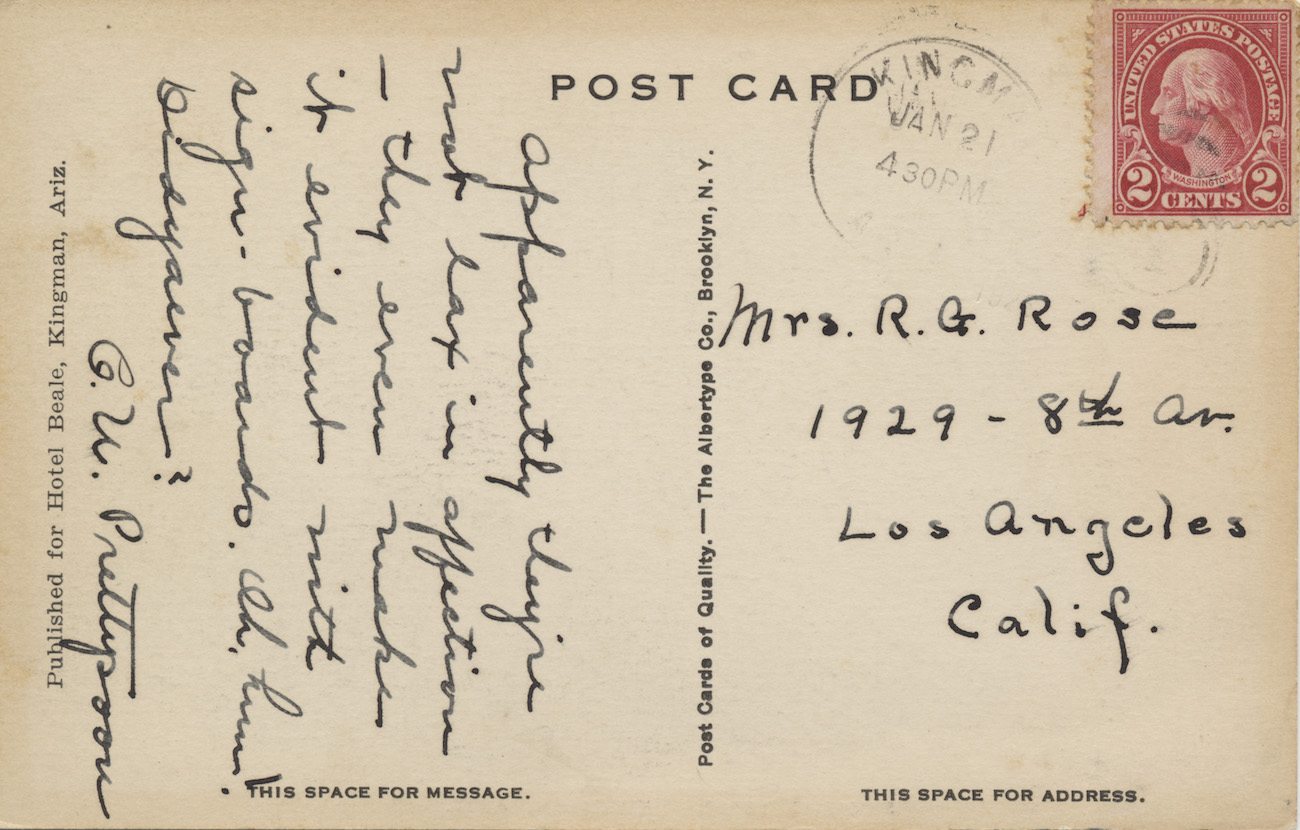 POST CARD
KINGM
JAN 21
430PM
UNITED STATES POSTAGE
WASHINGTON
2 CENTS 2
Apparently they're
not lax in affection
– they even make
it evident with
sign-boards. Ah, hum!
Didyaever?
C. U. Prettysoon
Published for Hotel Beale, Kingman, Ariz.
Post Cards of Quality. — The Albertype Co., Brooklyn, N. Y.
Mrs. R. G. Rose
1929 - 8th Av.
Los Angeles
Calif.
THIS SPACE FOR MESSAGE.
THIS SPACE FOR ADDRESS.